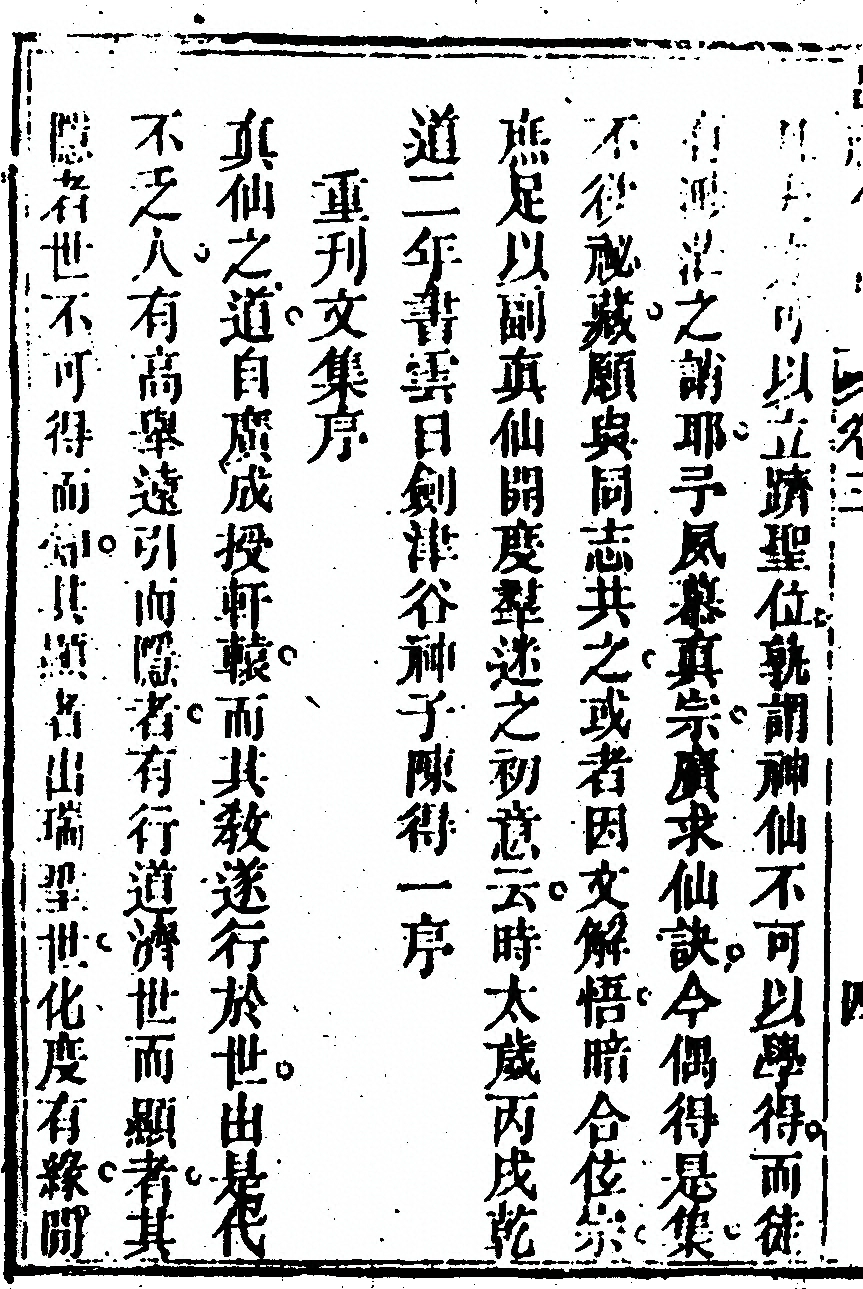 可以立躋聖位孰謂神仙不可以學得而徒
有渺茫之誚耶予夙慕真宗廣求仙訣今偶得是集
不徒祕藏願與同志共之或者因文解悟暗合伭宗
庶足以副真仙開度羣迷之初意云時太歲丙戌乾
道二年書雲日劍津谷神子陳得一序
重刊文集序
真仙之道自廣成授軒轅而其教遂行於世由是代
不乏人有高舉遠引而隱者有行道濟世而顯者其
隱者世不可得而知其顯者出瑞聖世化度有緣開